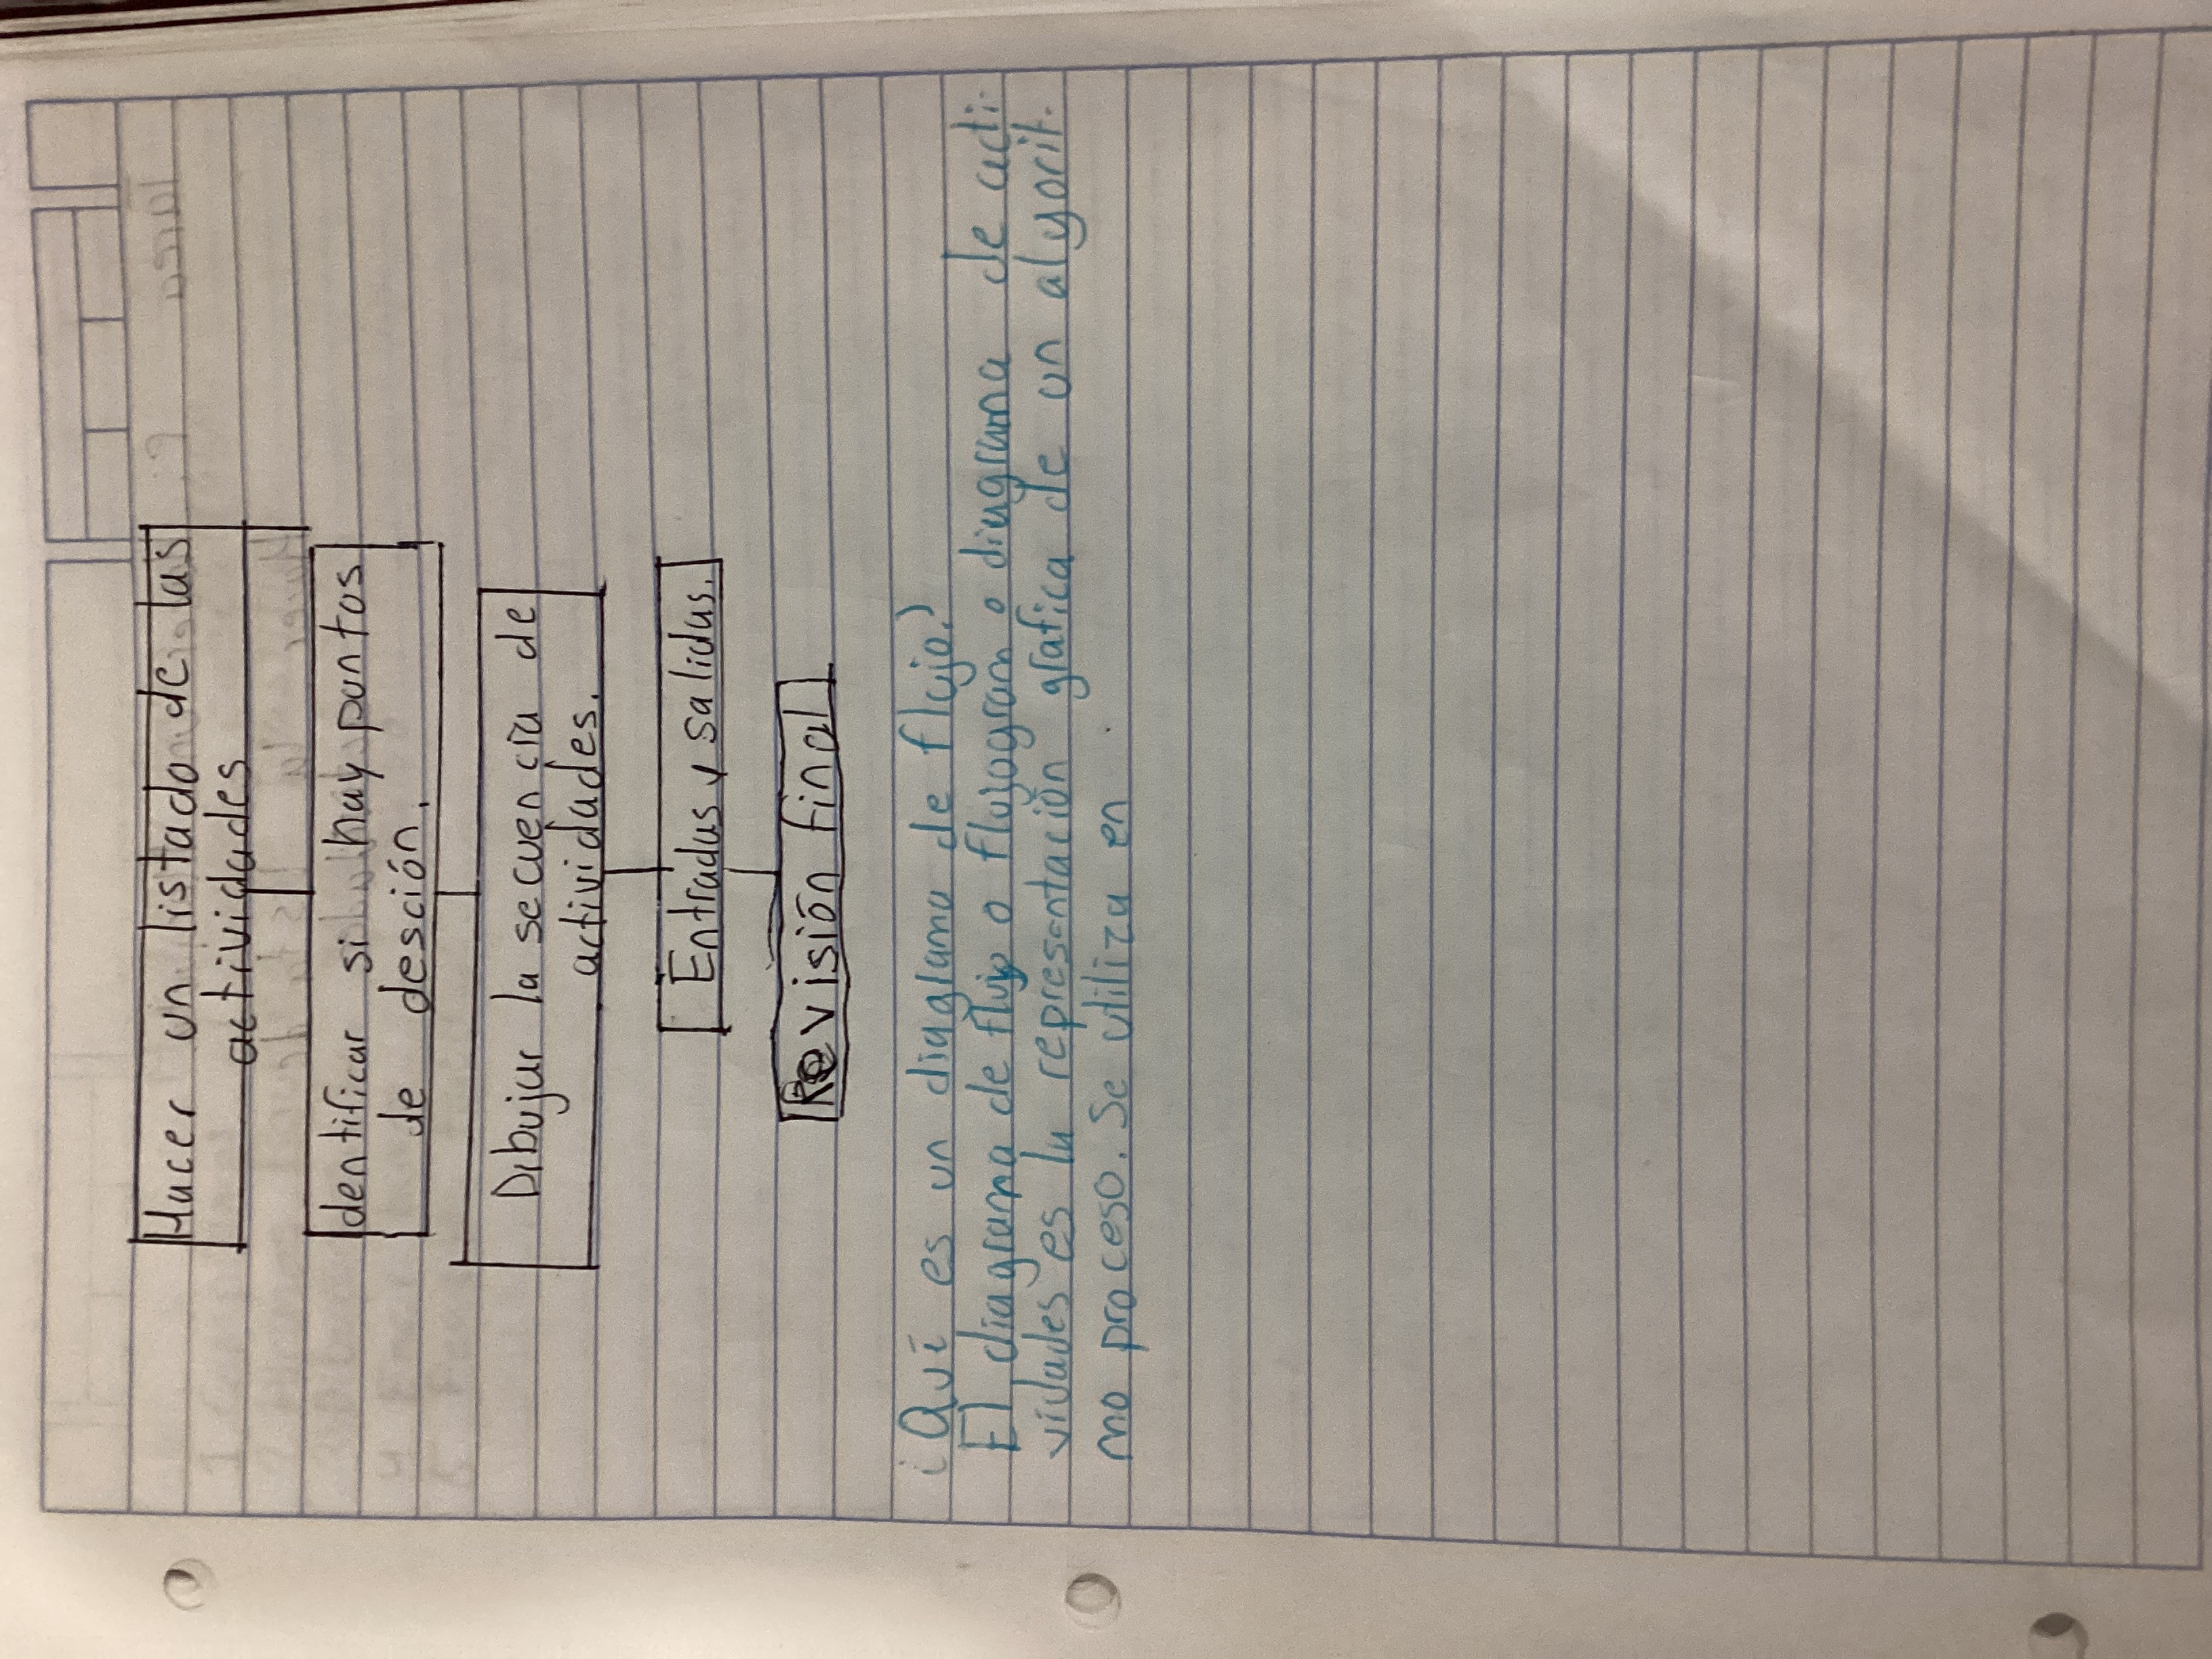 Hacer un listado de las
actividades
identificar si hay puntos
de desción.
Dibujar la secuencia de
actividades.
Entradas y salidas.
Revisión final
¿Qué es un diagrama de flujo?
El diagrama de flujo o flujogram o diagrama de acti-
vidades es la representación grafica de un algorit-
mo proceso. Se utiliza en